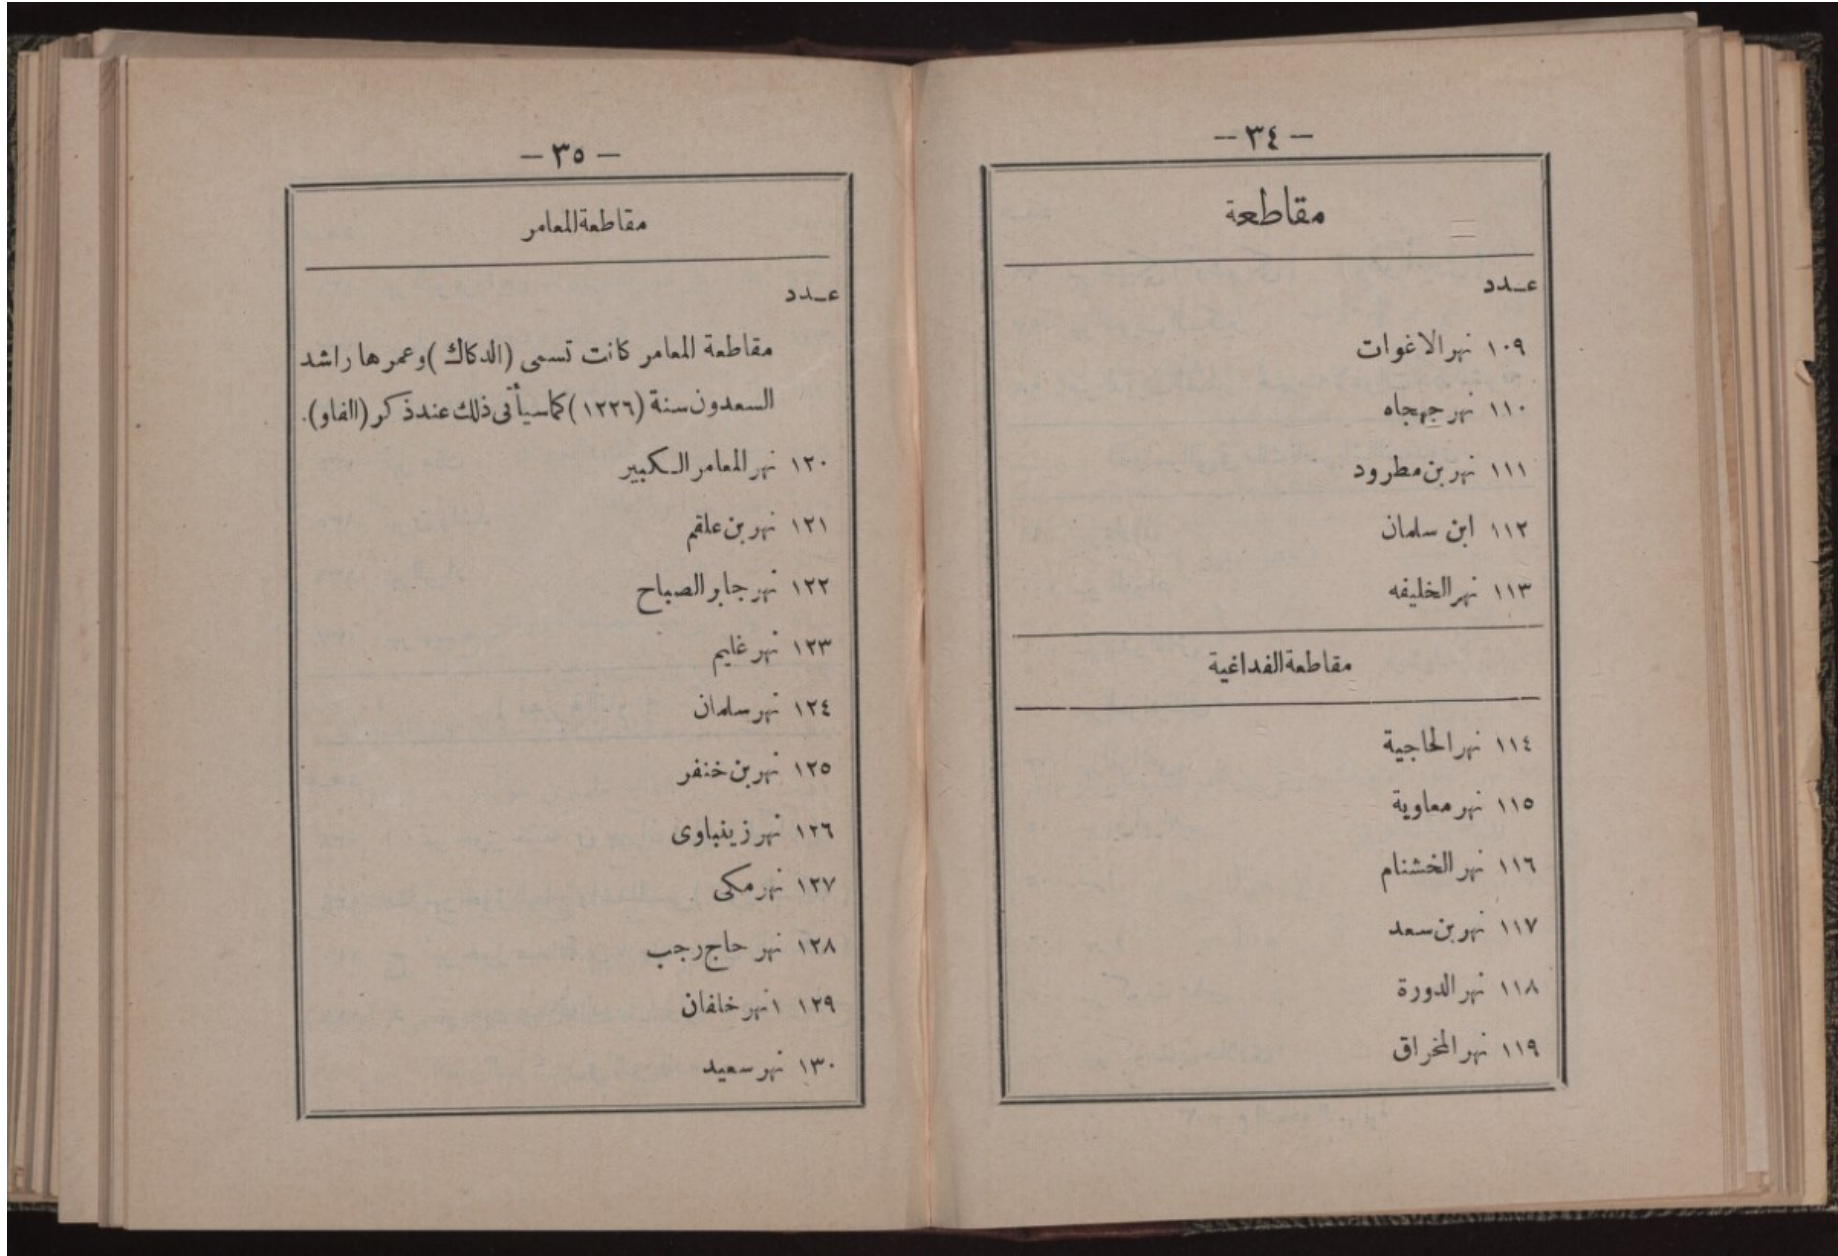 — ٣٤ —
مقاطعة
عـدد
١٠٩ نهر الاغوات
١١٠ نهر جهجاه
١١١ نهر بن مطرود
١١٢ ابن سلمان
١١٣ نهر الخليفه
مقاطعة الفداغية
١١٤ نهر الحاجية
١١٥ نهر معاوية
١١٦ نهر الخشنام
١١٧ نهر بن سعد
١١٨ نهر الدورة
١١٩ نهر المخراق
— ٣٥ —
مقاطعة المعامر
عـدد
مقاطعة المعامر كانت تسمى (الدكاك) وعمرها راشد
السعدون سنة (١٢٢٦) كما سيأتى ذلك عند ذكر (الفاو).
١٢٠ نهر المعامر الـكبير
١٢١ نهر بن علقم
١٢٢ نهر جابر الصباح
١٢٣ نهر غايم
١٢٤ نهر سلمان
١٢٥ نهر بن خنفر
١٢٦ نهر زينباوى
١٢٧ نهر مكى
١٢٨ نهر حاج رجب
١٢٩ ١نهر خلفان
١٣٠ نهر سعيد